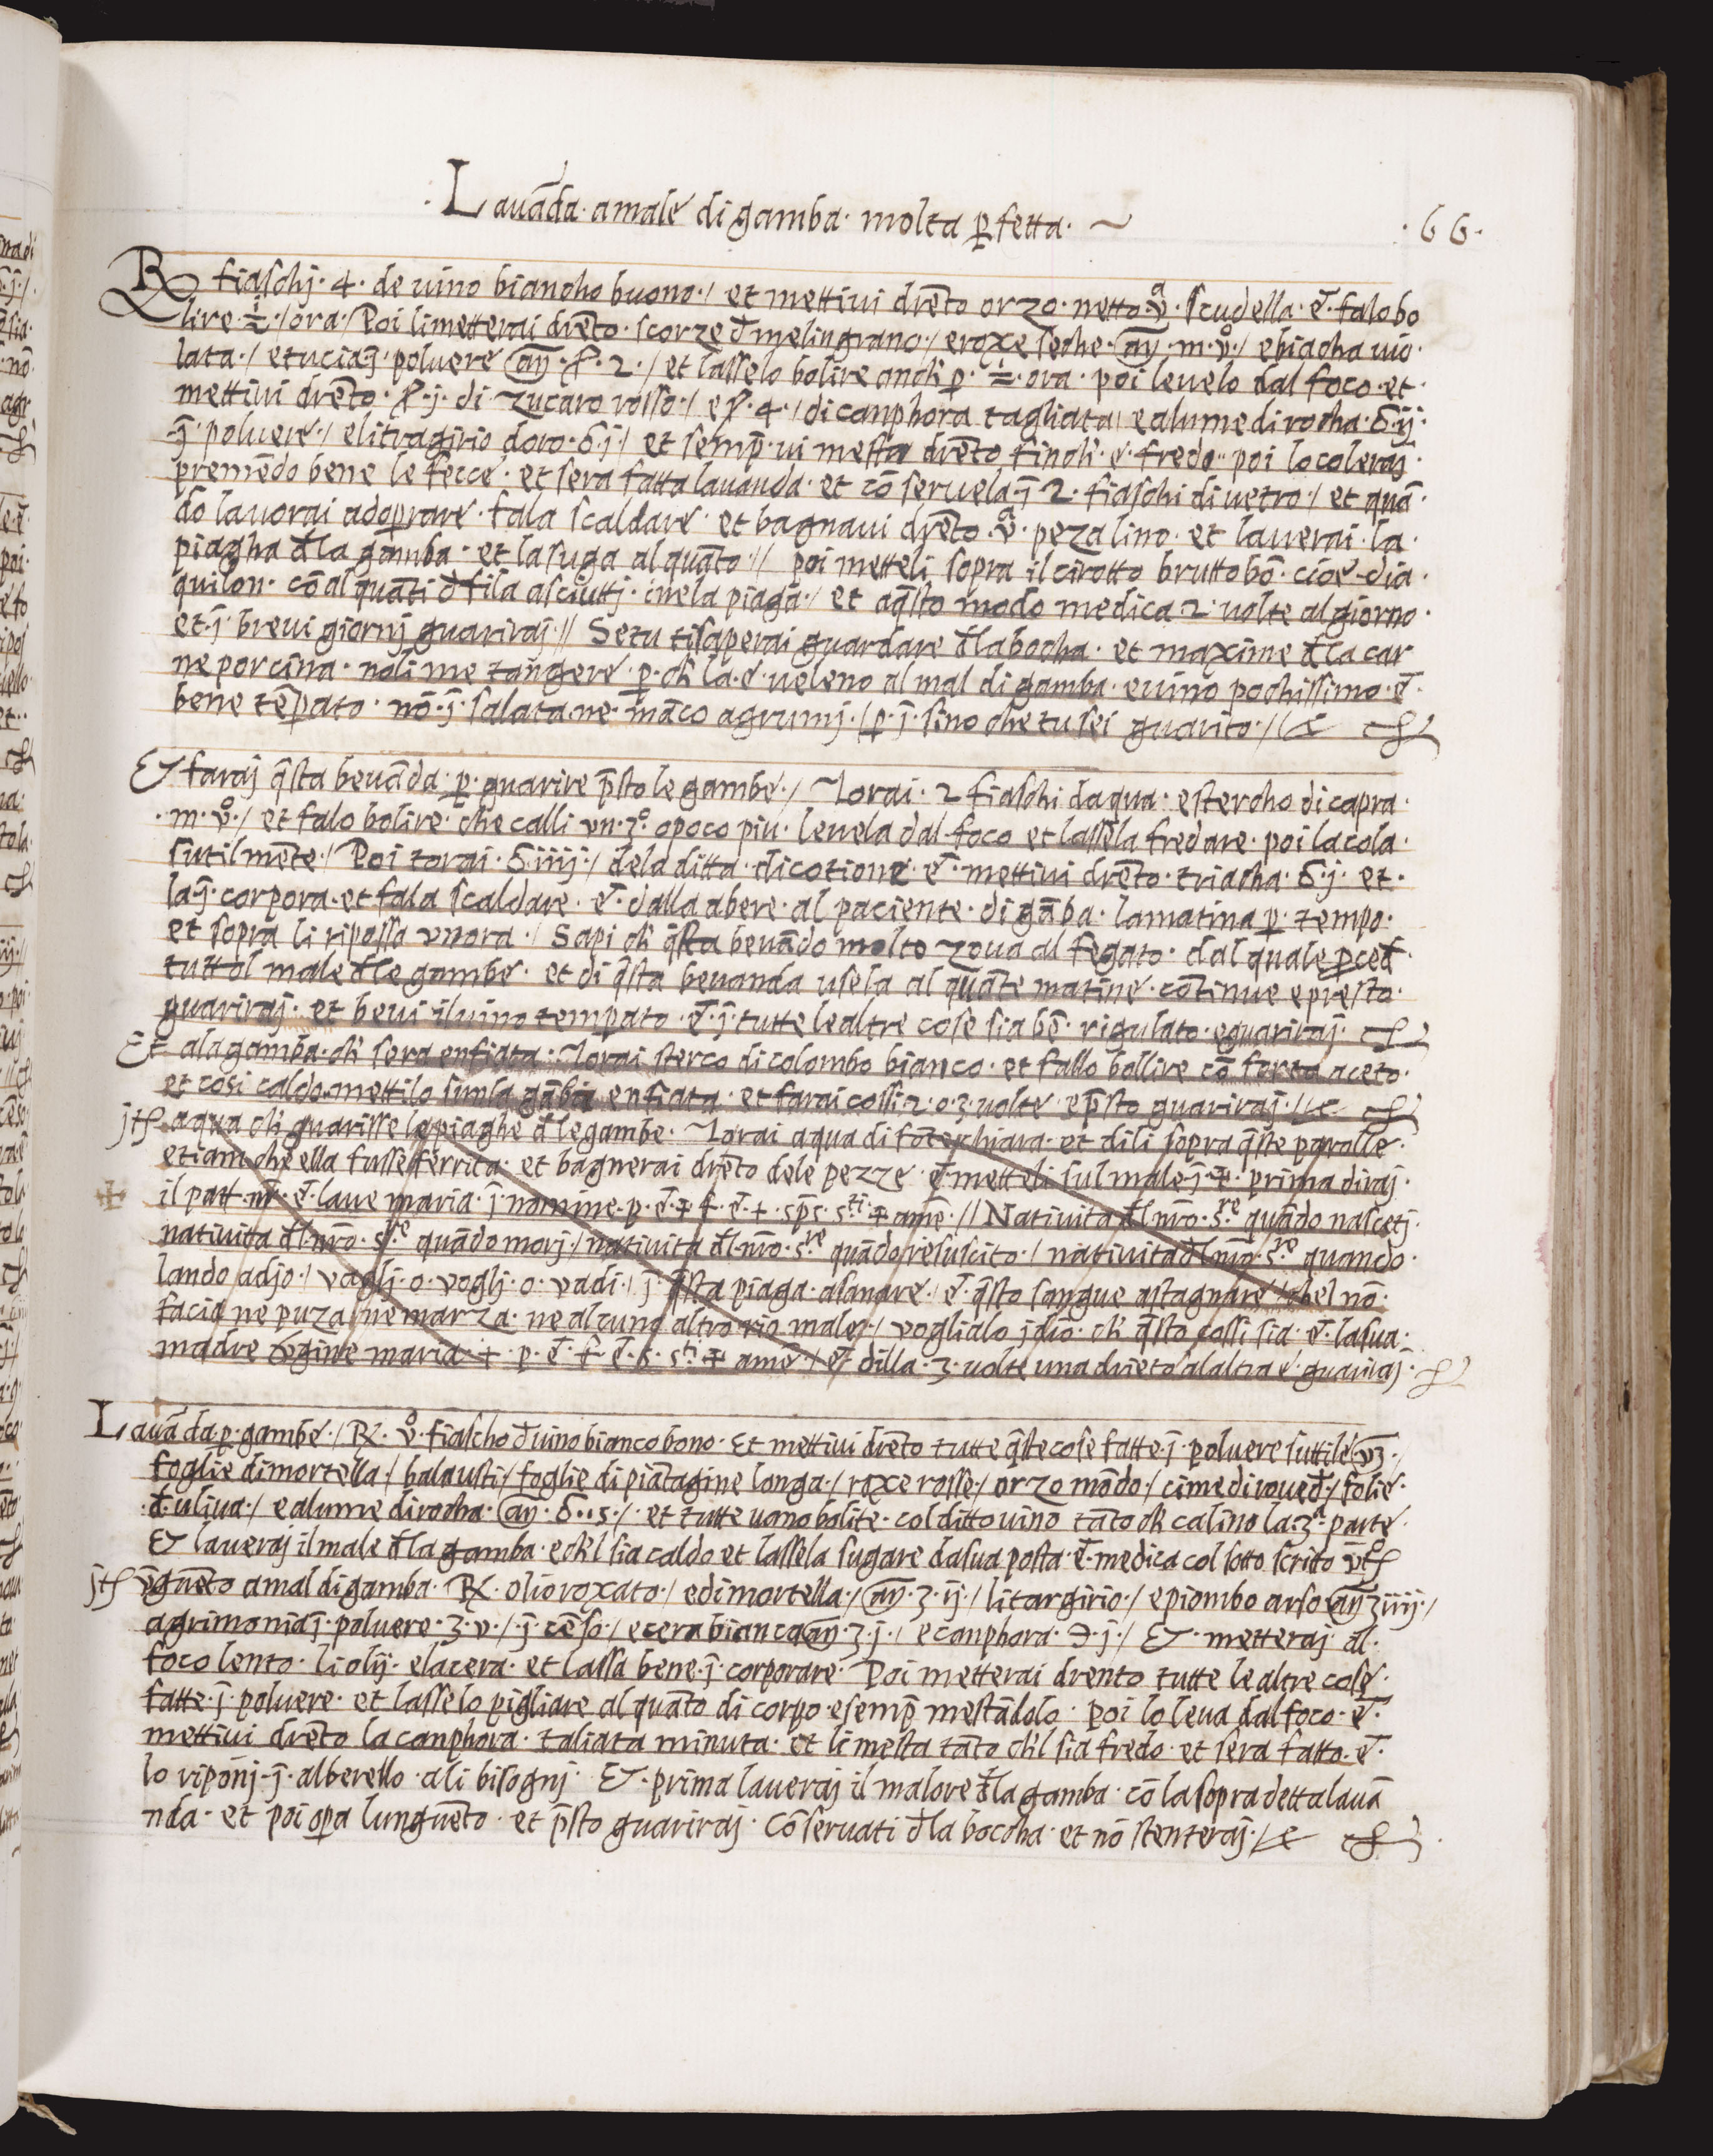 · Lauāda · amale di gamba · molta ꝑfetta · ~
· 66 ·
℞ fiaschj · 4 · de uino biancho buono · / et mettiui drēto orzo · netto · v̊ᵃ · scudella · et̄ · falo bo
lire · ½ · / ora · / Poi limetterai drēto · scorze đ melingrano · / eroxe seche · an̄ · m · v̊ · / ebiacha uio ·
lata · / etucia · j̄ · poluere an̄ · 2 · / et lasselo bolire anch̄ ꝑ · ½ · ora · poi leuelo dal foco · et ·
mettiui drēto · j · di zucaro rosso · / e · 4 · / di canphora tagliata / ealume di rocha · ij ·
j̄ · poluere · / elitragirio doro · j · / et semp̄ · ui mesta drēto finch̄ · e · fredo ·· poi lo coleraj ·
premēdo bene le fecce · et sera fatta lauanda · et cō seruela · j̄ 2 · fiaschi di uetro · / et quā ·
do la uorai adoprare · fala scaldare · et bagnaui drēto · v̊ᵃ · peza lino · et lauerai · la ·
piagha đla gamba · et la suga alquāto · // poi metteli sopra il cirotto brutto bō · cioe · dia ·
quilon · cō alquāti đ fila asciuttj · inela piaga · / et aq̄sto modo medica 2 · uolte al giorno ·
et · j̄ · breui giornj guariraj · // Se tu ti saperai guardare đla bocha · et maxime đla car
ne porcina · noli me tangere · ꝑ · ch̄ la · e · ueleno al mal di gamba · euino pochissimo · et̄ ·
bene tēpato · nō · j̄ · salata ne · māco agrumj · / ꝑ · j̄ · sino che tu sei guarito · //
Et faraj q̄sta beuāda · ꝑ · guarire p̄sto le gambe · / Torai · 2 fiaschi daqua · estercho di capra ·
· m · v̊ · / et falo bolire · che calli vn · 3° · opoco piu · leuela dal foco et lassela fredare · poi la cola ·
sutilmēte · / Poi torai · iiij · / dela ditta · dicotione · et̄ · mettiui drēto · triacha · j · et ·
la · j̄ · corpora · et fala scaldare · et̄ · dalla abere · al paciente · di gāba · la matina ꝑ · tempo ·
et sopra li ripossa vnora · / Sapi ch̄ q̄sta beuādo molto zoua al fegato · dal quale ꝓceđ ·
tutt'ol male đle gambe · et di q̄sta beuanda usela al quāte matine · cōtinue epresto ·
guariraj · et beui il uino tempato · et̄ · j̄ · tutte le altre cose sia bē · rigulato · eguariraj ·
Et ala gamba · ch̄ sera enfiata · Torai sterco di colombo bianco · et fallo bollire cō forta aceto ·
et cosi caldo · mettilo sunla gābia enfiata · et farai cossi 2 · o · 3 · uolte · ep̄sto guariraj · //
jtƷ aqua ch̄ guarisse le piaghe đ le gambe · Torai aqua di fōte chiara · et dili sopra q̄ste parolle ·
etiam che ella fusse ferrita · et bagnerai drēto dele pezze · et̄ · metteli sul male · j̄ · ✝ · prima diraj ·
il patt · nr̄ · et̄ · laue maria · j̄ nomine · p · et̄ · ✝ f · et̄ · ✝ · sp̄s · s.ᵗⁱ · ✝ amē · // Natiuita đl nr̄o · s.ʳᵉ quādo nascetj ·
natiuita đl nr̄o · s.ʳᵉ quādo morj · / natiuita đl nr̄o · s.ʳᵉ quādo resuscito · / natiuita đl nr̄o · s.ʳᵉ quando ·
lando adjo · / vaglj · o · voglj · o · vadi · / j̄ · q̄sta piaga · asanare · / et̄ · q̄sto sangue astagnare / chel nō ·
facia ne puza / ne marza · ne alcuno altro rio male · / voglialo jdio · ch̄ q̄sto cossi sia · et̄ · la sua ·
madre v̄gine maria · ✝ · p · et̄ · f · et̄ · s · s.ᵗⁱ ✝ amē · / et̄ dilla · 3 · uolte una drieto alaltra e · guariraj ·
Lauāda · ꝑ · gambe · / ℞ · v̊ · fiascho đ uino bianco bono · Et mettiui drēto tutte q̄ste cose fatte · j̄ · poluere suttile ·
foglie di mortella · / balausti · / foglie di piātagine longa · / roxe rosse · / orzo mōdo · / cime di roueđ · / folie ·
· đ · uliua · / ealume di rocha · an̄ · s · / · et tutte uano bolite · col ditto uino tāto ch̄ calino la · 3ᵃ · parte ·
Et laueraj il male đ la gamba · ech'l sia caldo et lassela sugare da sua posta · et̄ · medica col sotto scrito
jtƷ v̄guēto amal di gamba · ℞ · olio roxato · / edi mortella · / an̄ · ʒ · ij · / litargirio · / epiombo arso an̄ ʒ iiij · /
agrimonia j̄ · poluere · ʒ · v · / · j̄ cēso · / ecera bianca an̄ · ʒ · j · / ecanphora · ℈ · j · / Et · metteraj al ·
foco lento · li olij · elacera · et lassa bene · j̄ · corporare · Poi metterai drento tutte le altre cose ·
fatte · j̄ · poluere · et lasselo pigliare al quāto di corpo · esemp̄ mestādolo · poi lo leua dal foco · et̄ ·
mettiui drēto la canphora · taliata minuta · et li mesta tāto ch'l sia fredo · et sera fatto · et̄ ·
lo riponj · j̄ · alberello · ali bisognj · Et · prima laueraj il malore đla gamba · cō la sopra detta lauā
nda · et poi opa lunguēto · et p̄sto guariraj · Cōseruati đ la boccha · et nō stenteraj · /